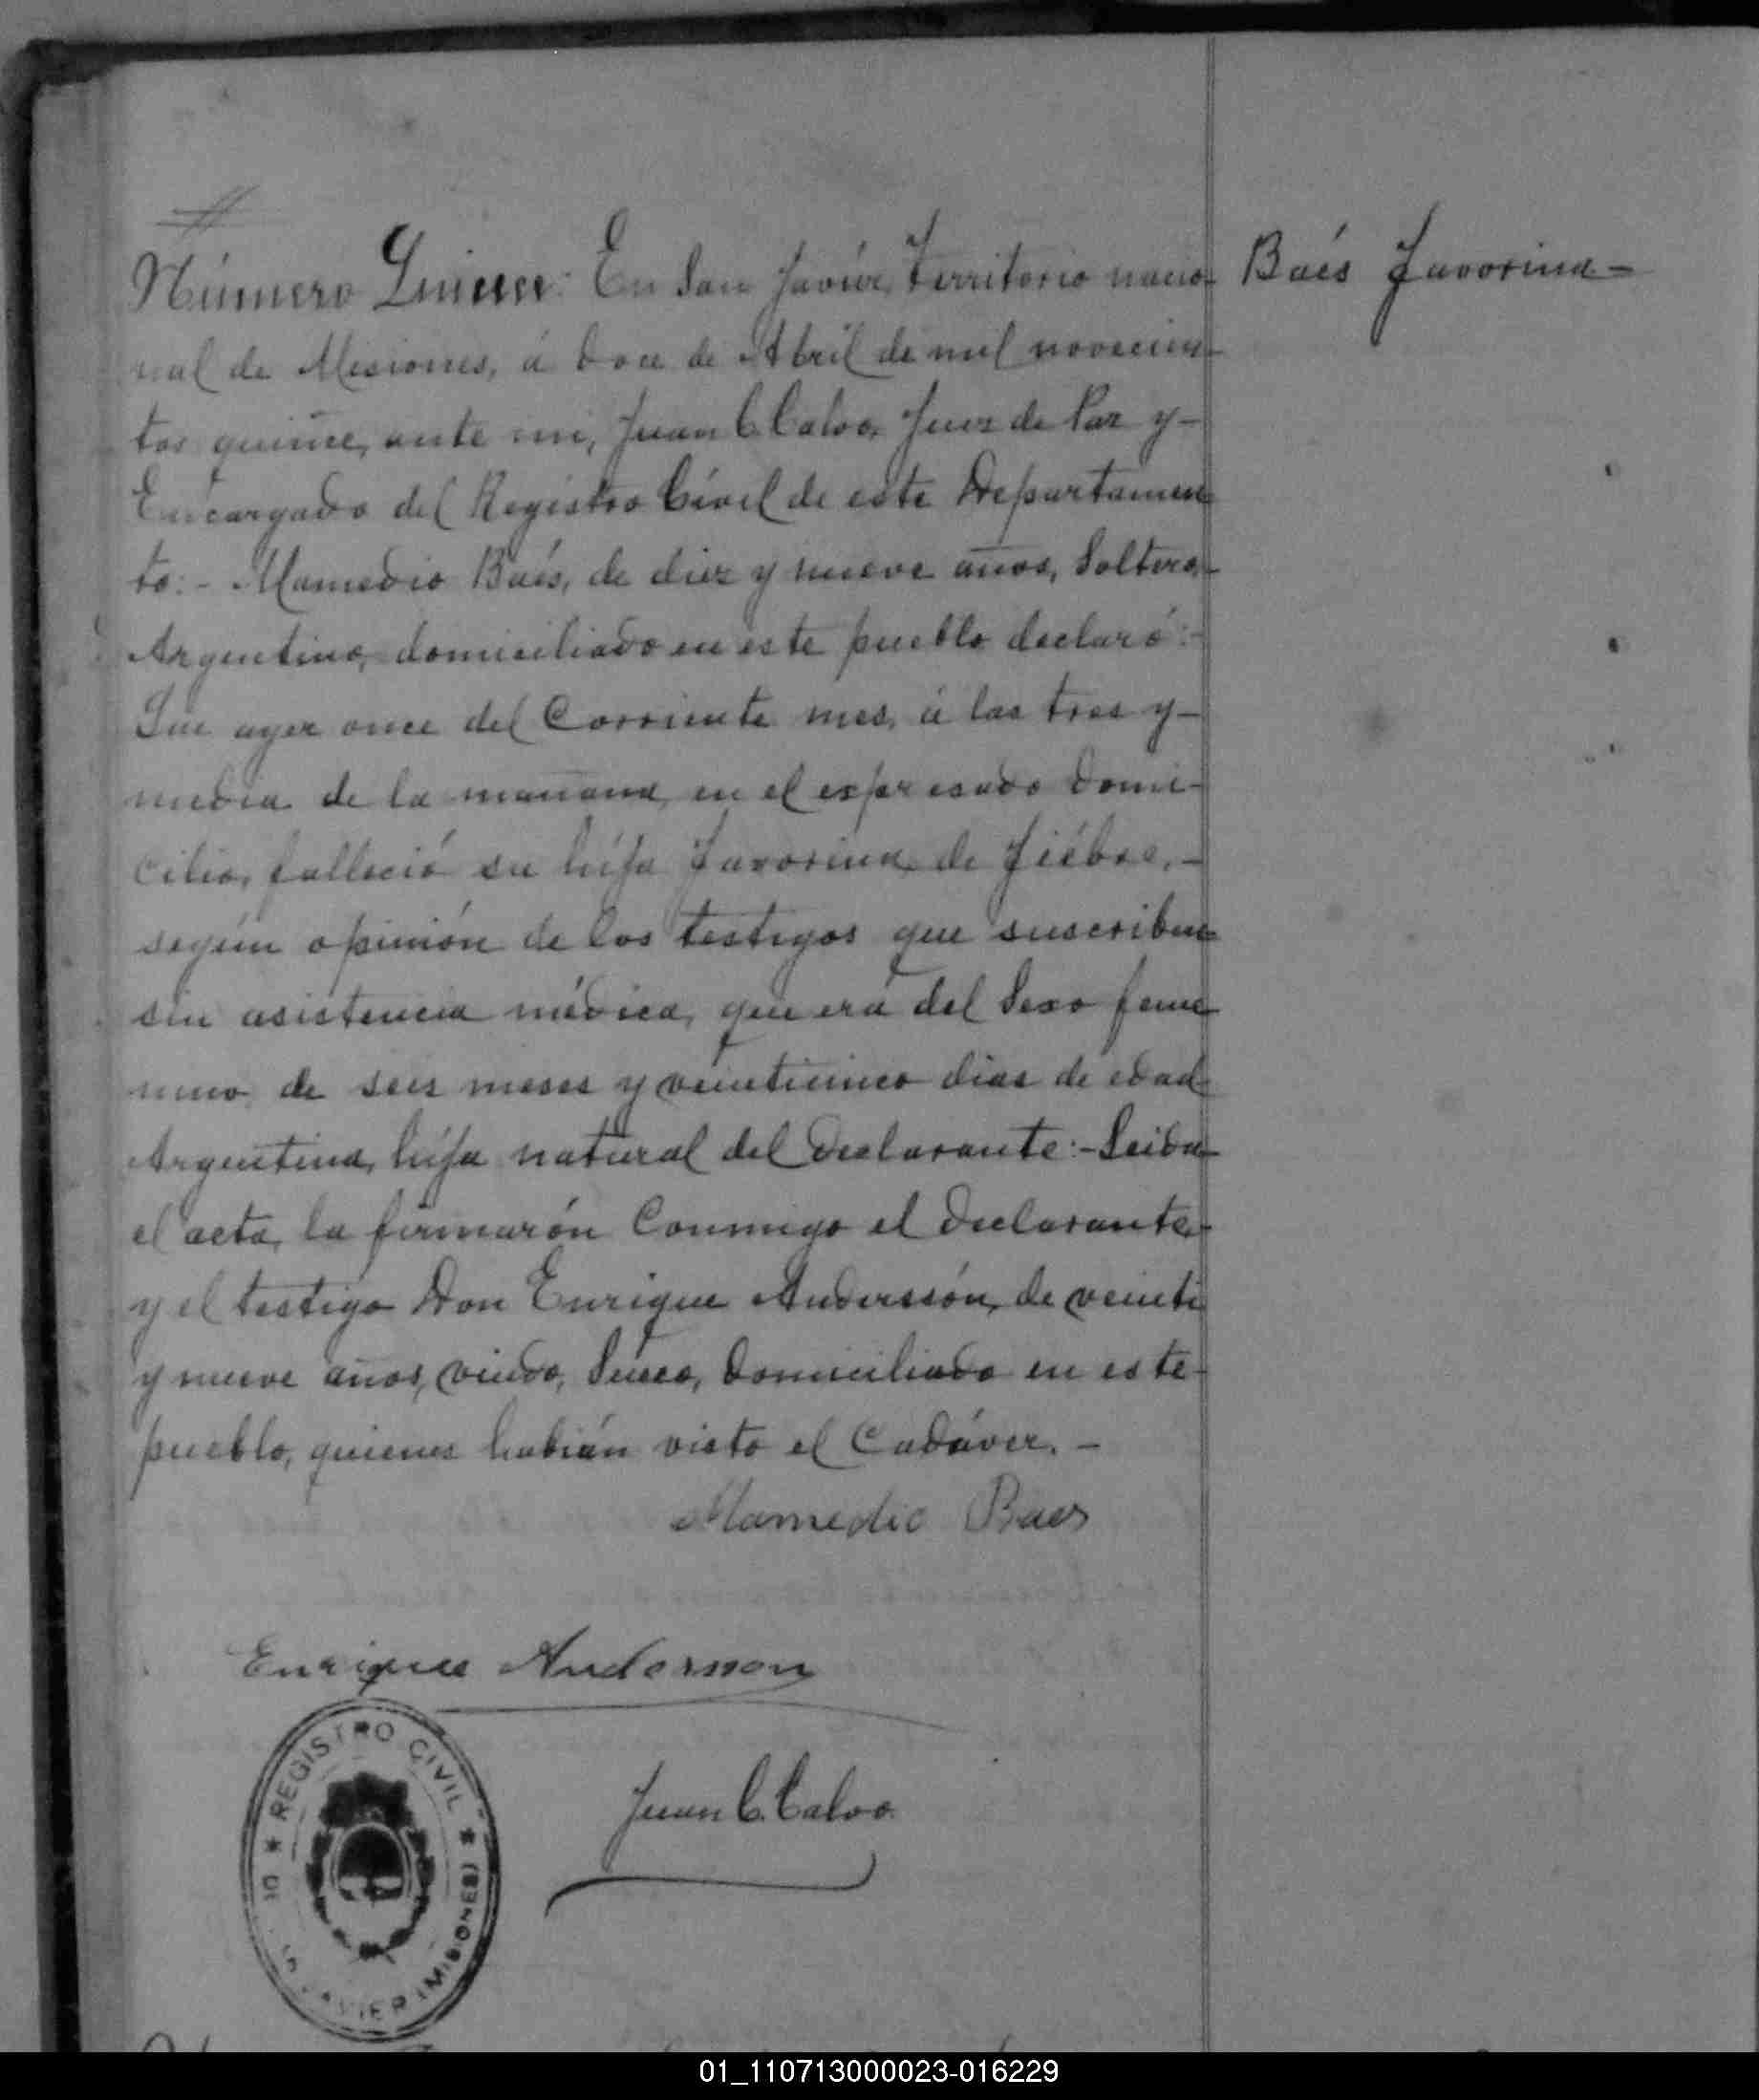 Número Quince: En San Javier, Territorio nacio-
nal de Misiones, á doce de Abril de mil novecien-
tos quince, ante mi, Juan C. Calvo, Juez de Paz y-
Encargado del Registro Civil de este Departamen-
to:- Mamedio Baés, de diez y nueve años, Soltero,-
Argentino, domiciliado en este pueblo declaró:-
Que ayer once del Corriente mes, á las tres y-
media de la mañana, en el expresado domi-
cilio, falleció su hija Favorina de Fiébre,-
según opinión de los testigos que suscriben
sin asistencia médica, que era del Sexo feme
nino, de seis meses y veinticinco dias de edad
Argentina, hija natural del declarante:- Leida
el acta, la firmarón Conmigo el declarante,
y el testigo Don Enrique Anderssón, de veinti
y nueve años, viudo, Sueco, domiciliado en este-
pueblo, quienes habián visto el Cadáver.-
Baés Favorina-
Mamedio Baes
Enrique Andersson
Juan C. Calvo
★ REGISTRO CIVIL ★
JAVIER (MISIONES)
01_110713000023-016229